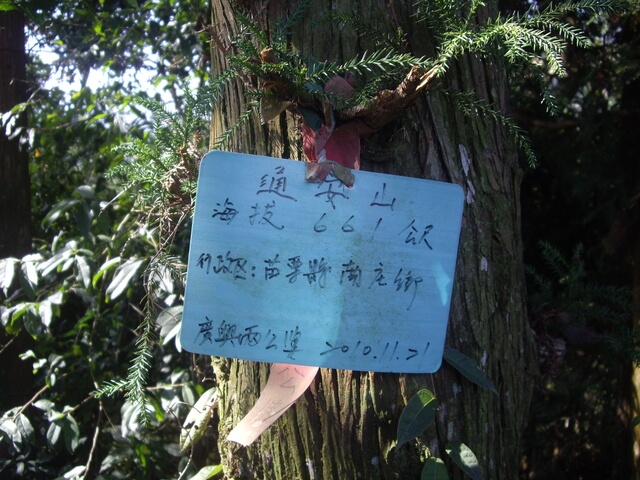 通安山
海技 661公尺
行政区:苗栗縣南庄鄉
廣興雨公隻 2010.11.21